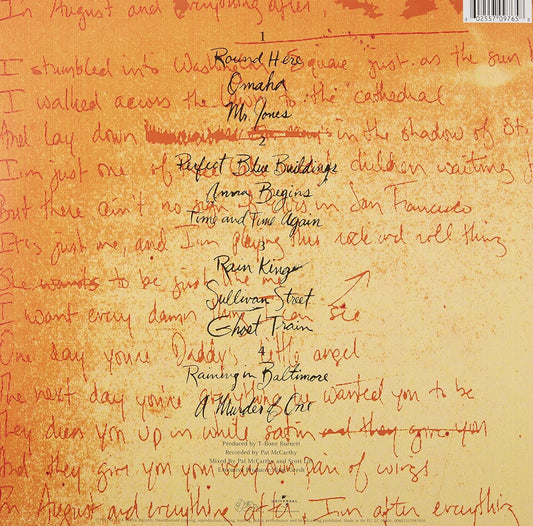 In August and everything after,
8 02557 09765 8
1
Round Here
I stumbled into Washington Square just as the sun
Omaha
I walked across the lawn to the cathedral
Mr. Jones
And lay down in the shadow of St.
2
I'm just one of children waiting
Perfect Blue Buildings
Anna Begins
But there ain't no in San Francisco
Time and Time Again
It's just me, and I'm playing this rock and roll thing
3
Rain King
She wants to be just like me
Sullivan Street
I want every damn thing I can see
Ghost Train
One day you're Daddy's little angel
4
Raining in Baltimore
The next day you're everything he wanted you to be
A Murder of One
They dress you up in white satin and they give you
Produced by T-Bone Burnett
Recorded by Pat McCarthy
Mixed by Pat McCarthy and Scott Litt
And they give you your pair of wings
In August and everything after, I'm after everything
UNIVERSAL